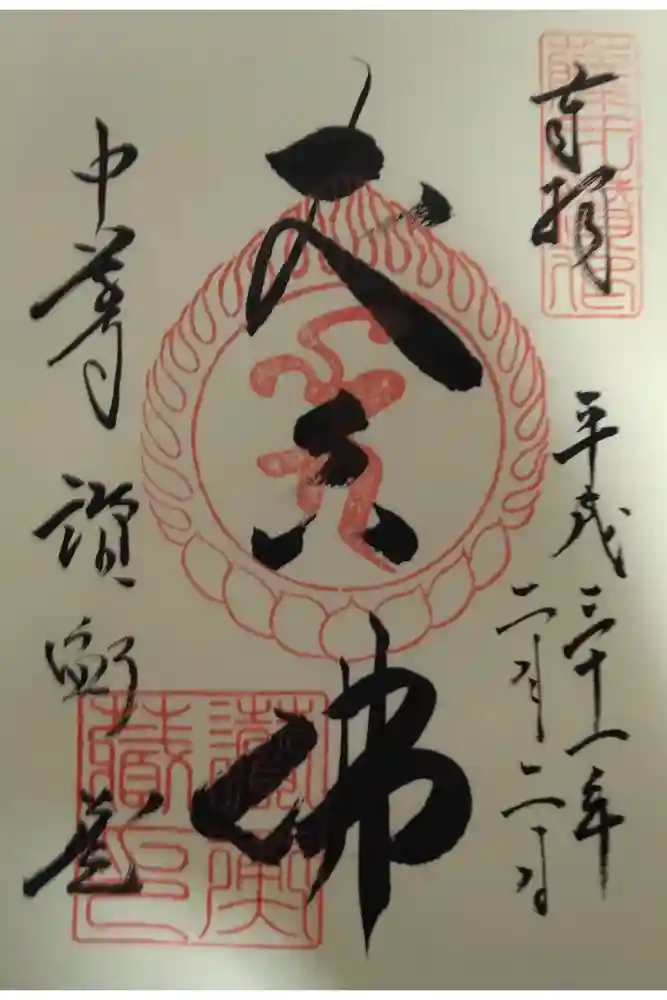 奉拝
平成三十一年
二月二日
丈六佛
中尊寺 讃衡蔵
讃衡
蔵印